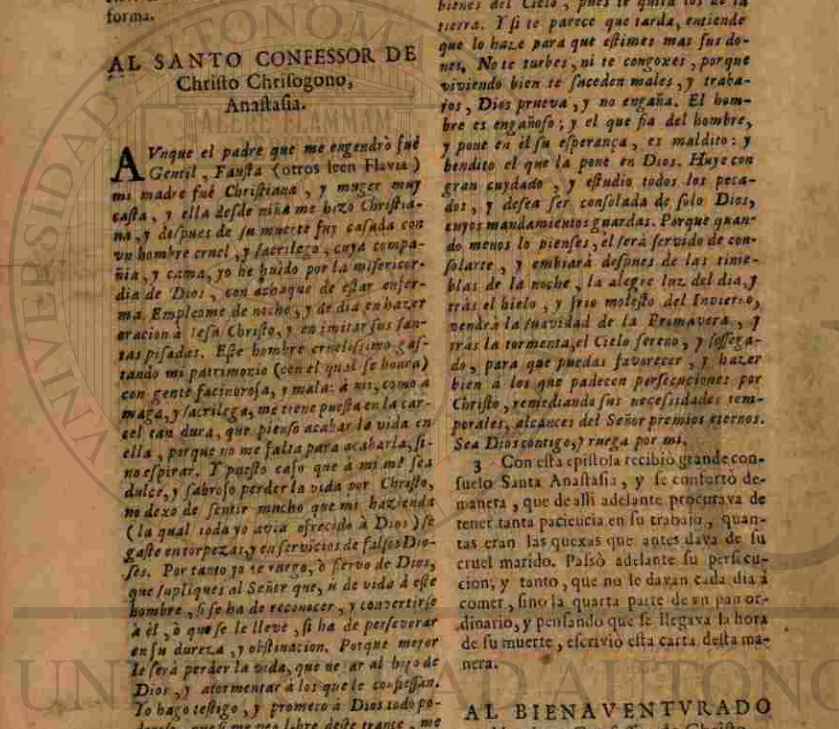 forma.
AL SANTO CONFESSOR DE
Christo Chrisogono,
Anastasia.
AVnque el padre que me engendrò fuè
Gentil, Fausta (otros leen Flavia)
mi madre fuè Christiana, y muger muy
casta, y ella desde niña me hizo Christia-
na, y despues de su muerte fuy casada con
vn hombre cruel, y sacrilego, cuya compa-
ñia, y cama, yo he huido por la misericor-
dia de Dios, con achaque de estar enfer-
ma. Empleome de noche, y de dia en hazer
oracion à Jesu Christo, y en imitar sus san-
tas pisadas. Este hombre cruelissimo gas-
tando mi patrimonio (con el qual se honra)
con gente facinorosa, y mala: à mi, como à
maga, y sacrilega, me tiene puesta en la car-
cel tan dura, que pienso acabar la vida en
ella, porque no me falta para acabarla, si-
no espirar. Y puesto caso que à mi me sea
dulce, y sabroso perder la vida por Christo,
no dexo de sentir mucho que mi hazienda
(la qual toda yo avia ofrecido à Dios) se
gaste en torpezas, y en servicios de falsos Dio-
ses. Por tanto yo te ruego, ò siervo de Dios,
que supliques al Señor que, ù de vida à este
hombre, si se ha de reconocer, y convertirse
à èl, ò que se le lleve, si ha de perseverar
en su dureza, y obstinacion. Porque mejor
le serà perder la vida, que negar al hijo de
Dios, y atormentar à los que le confiessan.
Yo hago testigo, y prometo à Dios todo po-
que si me veo libre deste trance, me
bienes del Cielo, pues te quita los de la
tierra. Y si te parece que tarda, entiende
que lo haze para que estimes mas sus do-
nes. No te turbes, ni te congoxes, porque
viviendo bien te suceden males, y traba-
jos, Dios prueva, y no engaña. El hom-
bre es engañoso; y el que fia del hombre,
y pone en èl su esperança, es maldito: y
bendito el que la pone en Dios. Huye con
gran cuydado, y estudio todos los peca-
dos, y desea ser consolada de solo Dios,
cuyos mandamientos guardas. Porque quan-
do menos lo pienses, èl serà servido de con-
solarte, y embiarà despues de las tinie-
blas de la noche, la alegre luz del dia, y
tràs el hielo, y frio molesto del Invierno,
vendrà la suavidad de la Primavera, y
tràs la tormenta, el Cielo sereno, y sossega-
do, para que puedas favorecer, y hazer
bien à los que padecen persecuciones por
Christo, remediando sus necessidades tem-
porales, alcances del Señor premios eternos.
Sea Dios contigo, y ruega por mi.
3 Con esta epistola recibiò grande con-
suelo Santa Anastasia, y se confortò de-
manera, que de alli adelante procurava de
tener tanta paciencia en su trabajo, quan-
tas eran las quexas que antes dava de su
cruel marido. Passò adelante su persecu-
cion, y tanto, que no le davan cada dia à
comer, sino la quarta parte de vn pan or-
dinario, y pensando que se llegava la hora
de su muerte, escriviò esta carta desta ma-
nera.
AL BIENAVENTVRADO
ALERE FLAMMAM
UNIVERSIDAD AUTONO